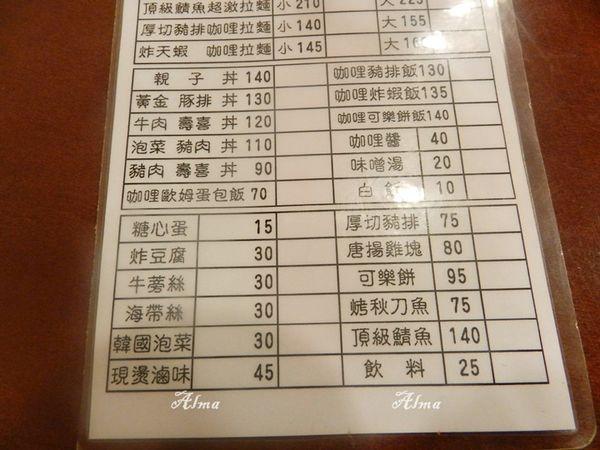 頂級鯖魚超激拉麵 小 210 大 225
厚切豬排咖哩拉麵 小 140 大 155
炸天蝦 咖哩拉麵 小 145 大 160
親子丼 140 咖哩豬排飯 130
黃金 豚排 丼 130 咖哩炸蝦飯 135
牛肉 壽喜 丼 120 咖哩可樂餅飯 140
泡菜 豬肉 丼 110 咖哩醬 40
豬肉 壽喜 丼 90 味噌湯 20
咖哩歐姆蛋包飯 70 白飯 10
糖心蛋 15 厚切豬排 75
炸豆腐 30 唐揚雞塊 80
牛蒡絲 30 可樂餅 95
海帶絲 30 烤秋刀魚 75
韓國泡菜 30 頂級鯖魚 140
現燙滷味 45 飲料 25
Alma Alma